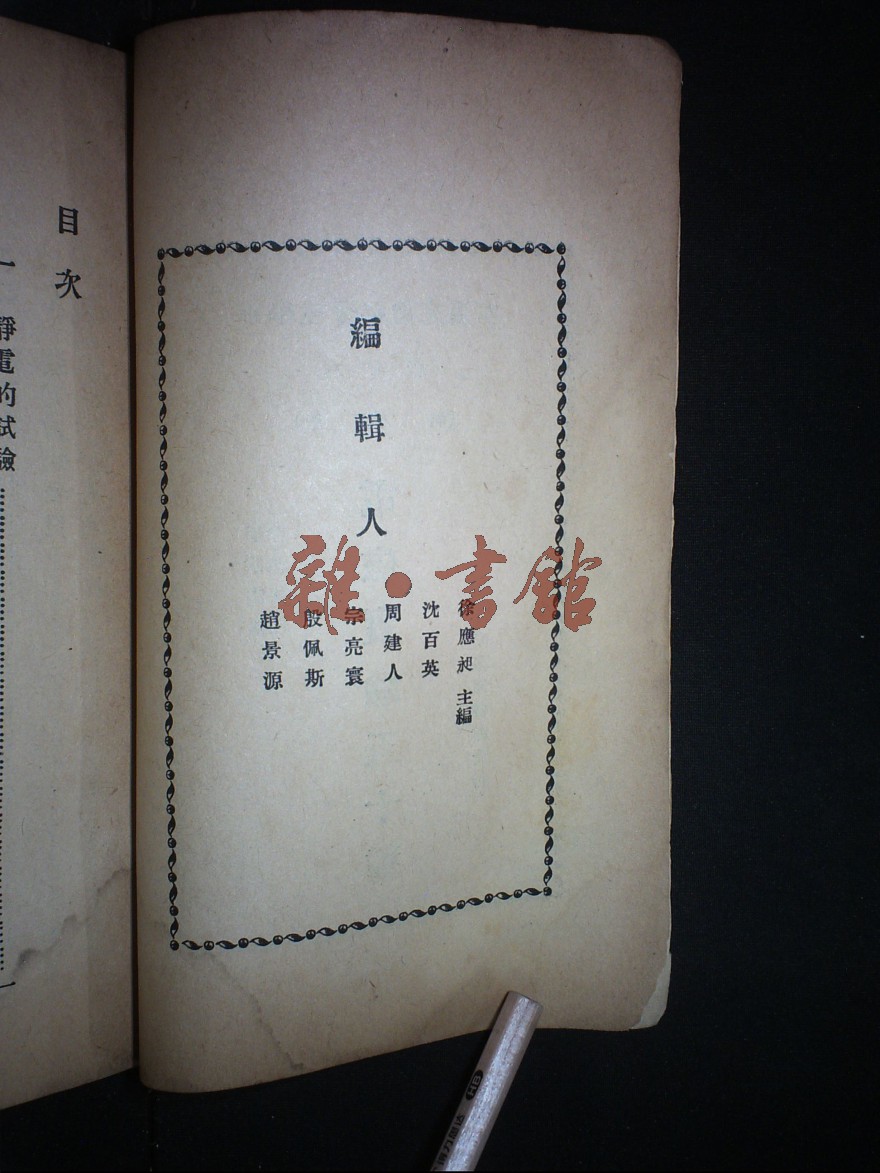 編輯人
徐應昶 主編
沈百英
周建人
宗亮寰
殷佩斯
趙景源
目次
一 靜電的試驗
雜·書館
HB